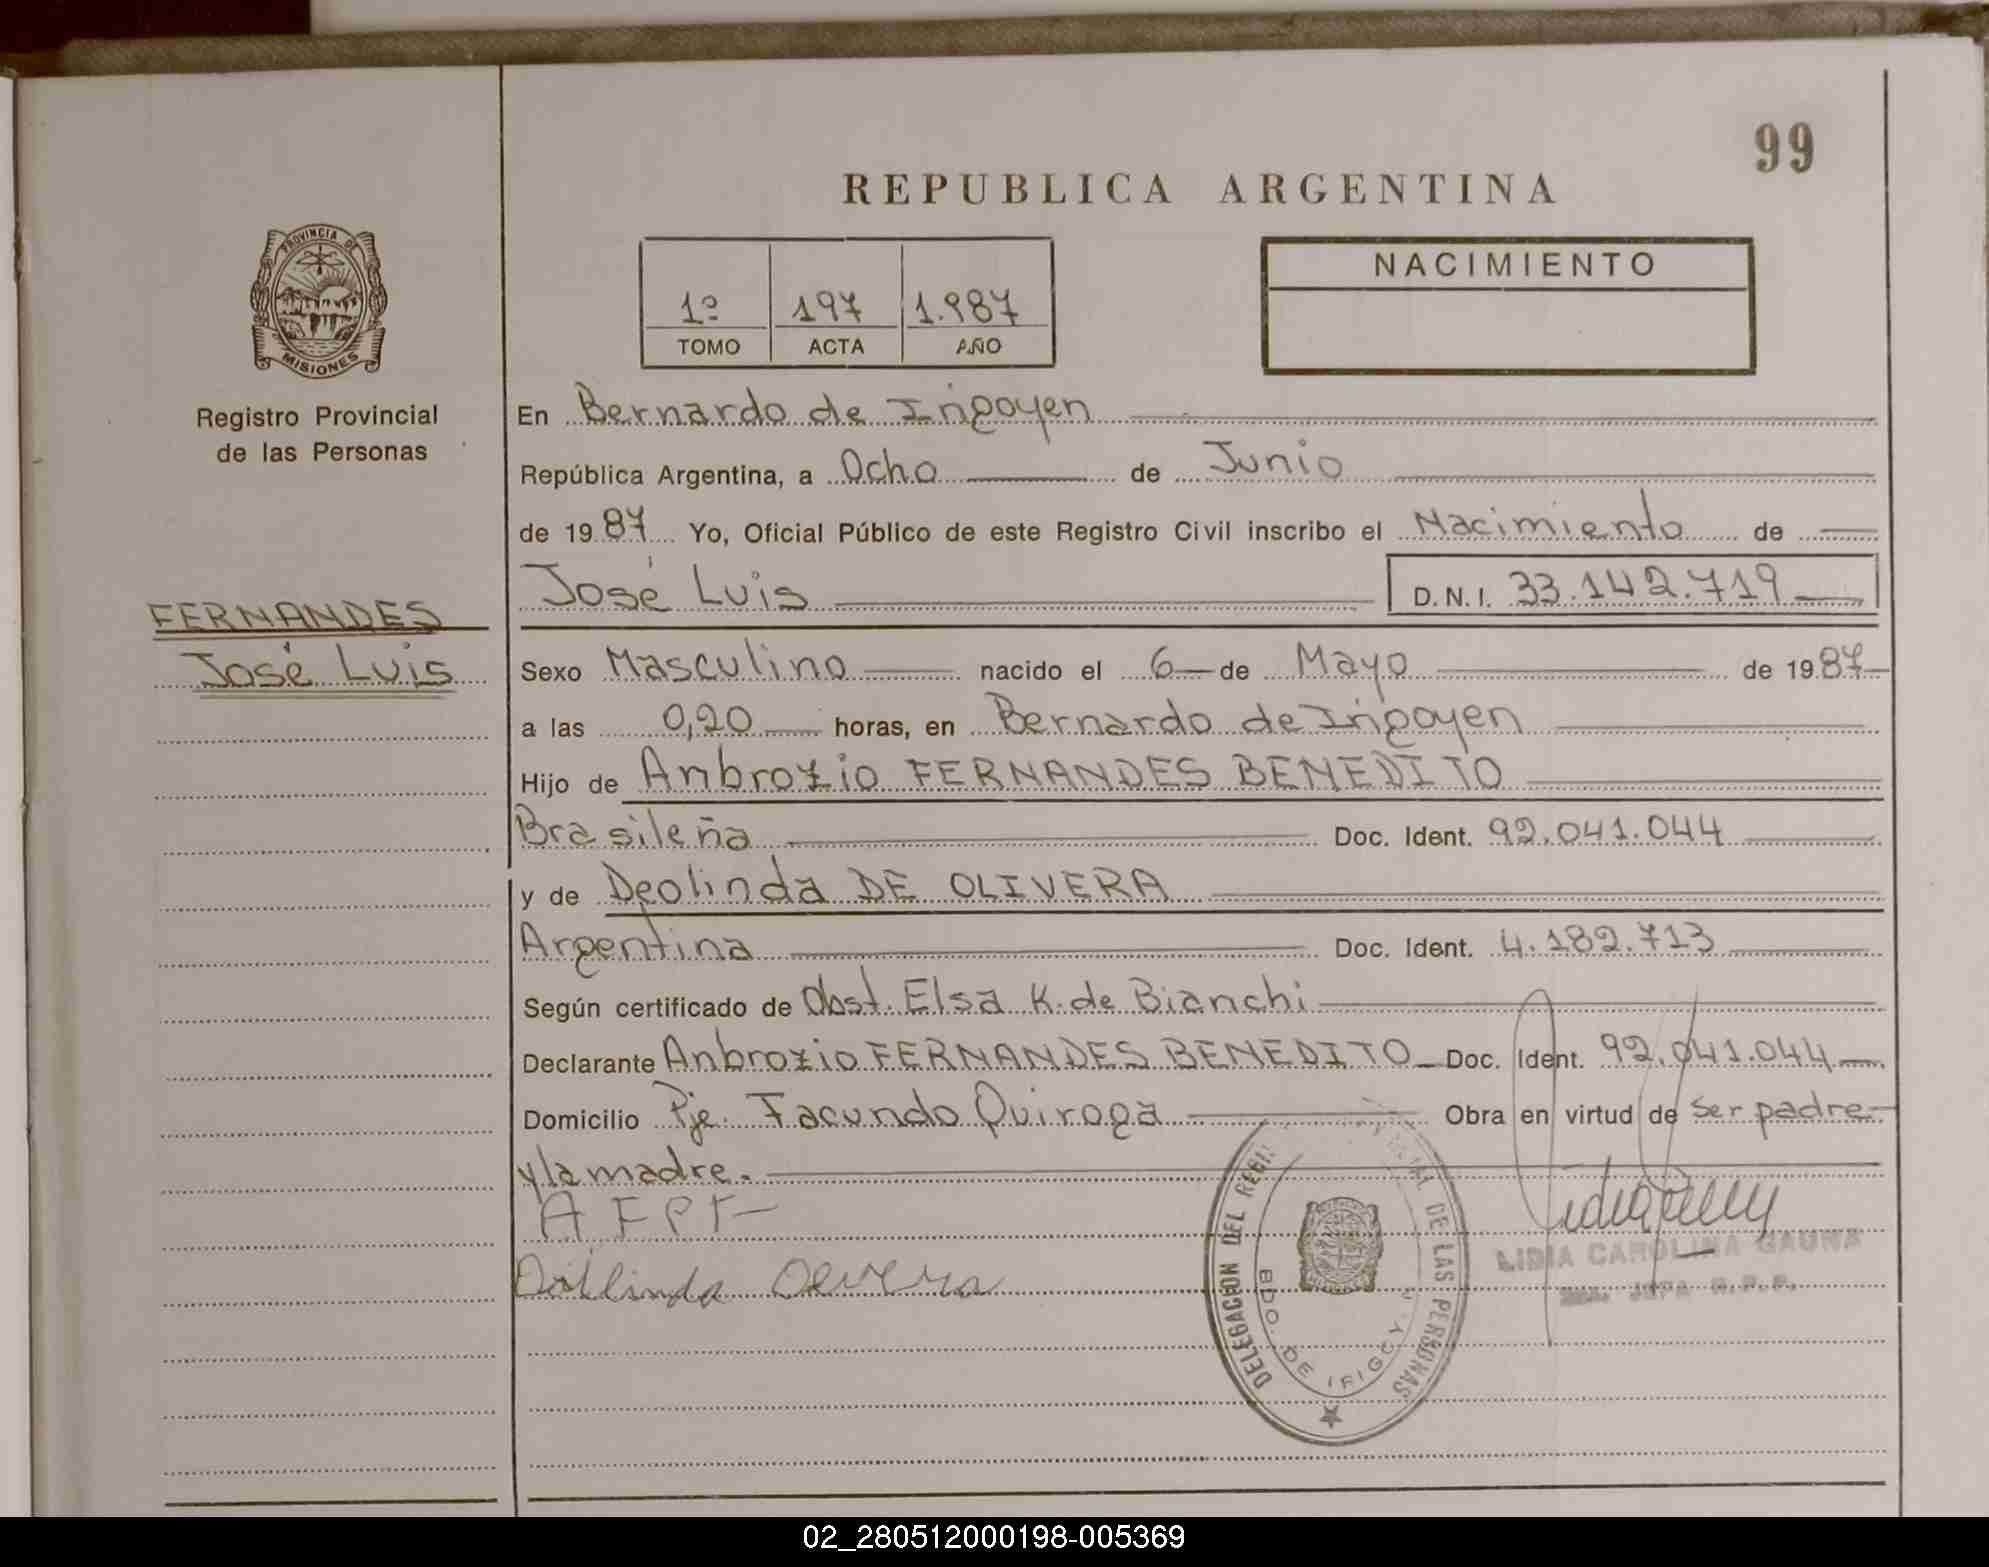 99
REPUBLICA ARGENTINA
PROVINCIA DE
MISIONES
Registro Provincial
de las Personas
1º 197 1.987
TOMO ACTA AÑO
NACIMIENTO
En Bernardo de Irigoyen
República Argentina, a Ocho de Junio
de 1987 Yo, Oficial Público de este Registro Civil inscribo el Nacimiento de
José Luis D.N.I. 33.142.719
FERNANDES
José Luis
Sexo Masculino nacido el 6 de Mayo de 1987
a las 0,20 horas, en Bernardo de Irigoyen
Hijo de Anbrozio FERNANDES BENEDITO
Brasileña Doc. Ident. 92.041.044
y de Deolinda DE OLIVERA
Argentina Doc. Ident. 4.182.713
Según certificado de Obst. Elsa K. de Bianchi
Declarante Anbrozio FERNANDES BENEDITO Doc. Ident. 92.041.044
Domicilio Pje. Facundo Quiroga Obra en virtud de ser padre
y la madre.
DELEGACION DEL REGI DE LAS PERSONAS
BDO. DE IRIGOY
LIDIA CAROLINA GAUNA
02_280512000198-005369